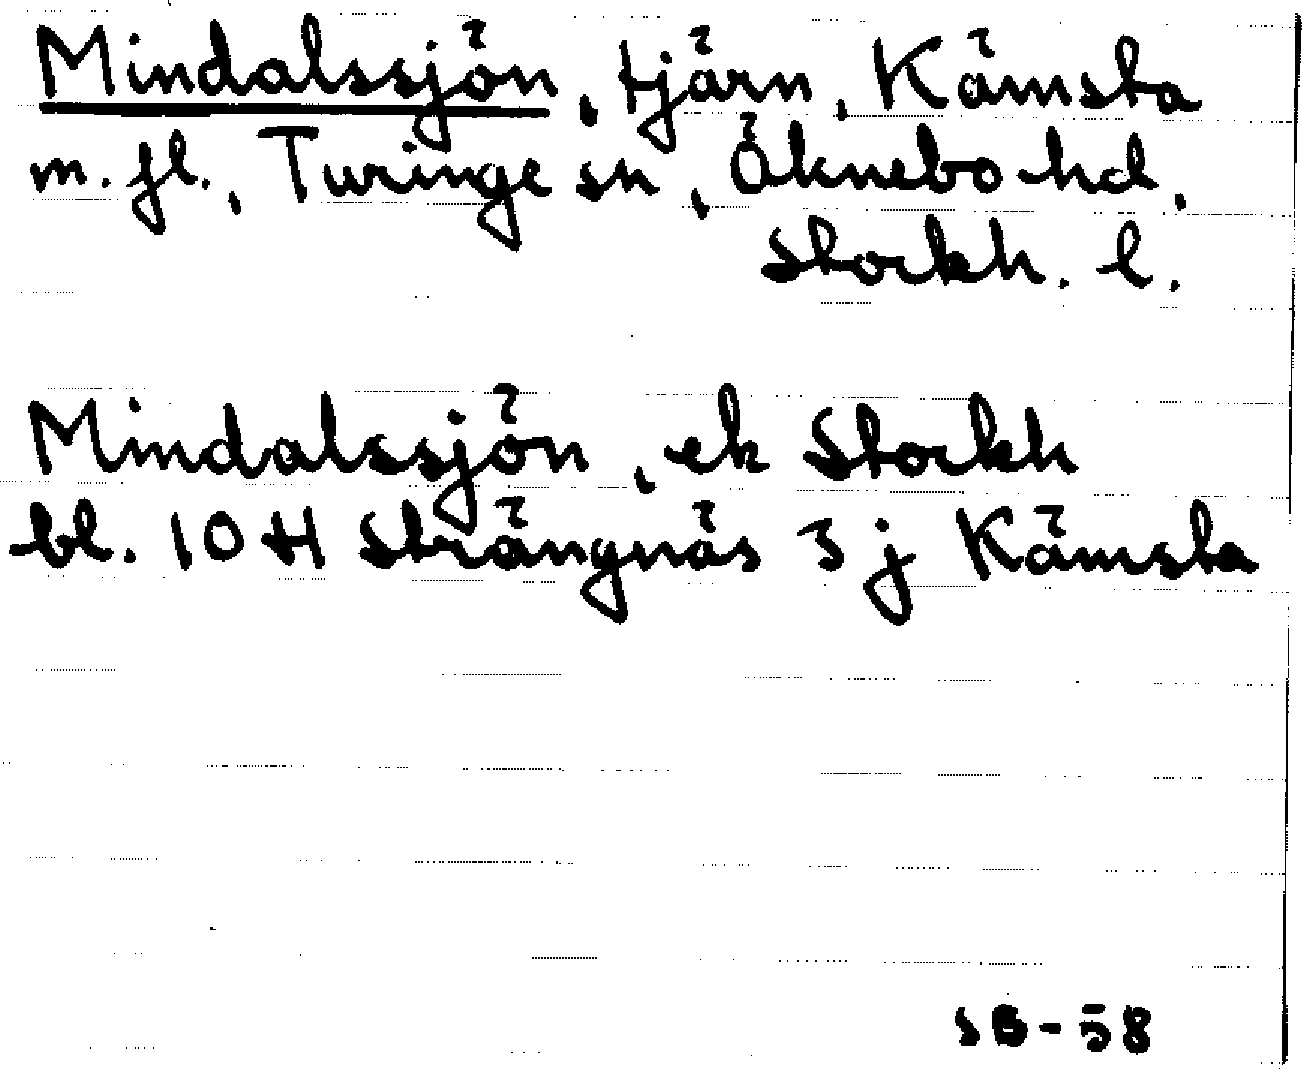 Mindalssjön, tjärn, Kämsta
m. fl., Turinge sn, Öknebo hd,
Stockh. l.
Mindalssjön, ek Stockh
bl. 10 H Strängnäs 3 j Kämsta
SB-58